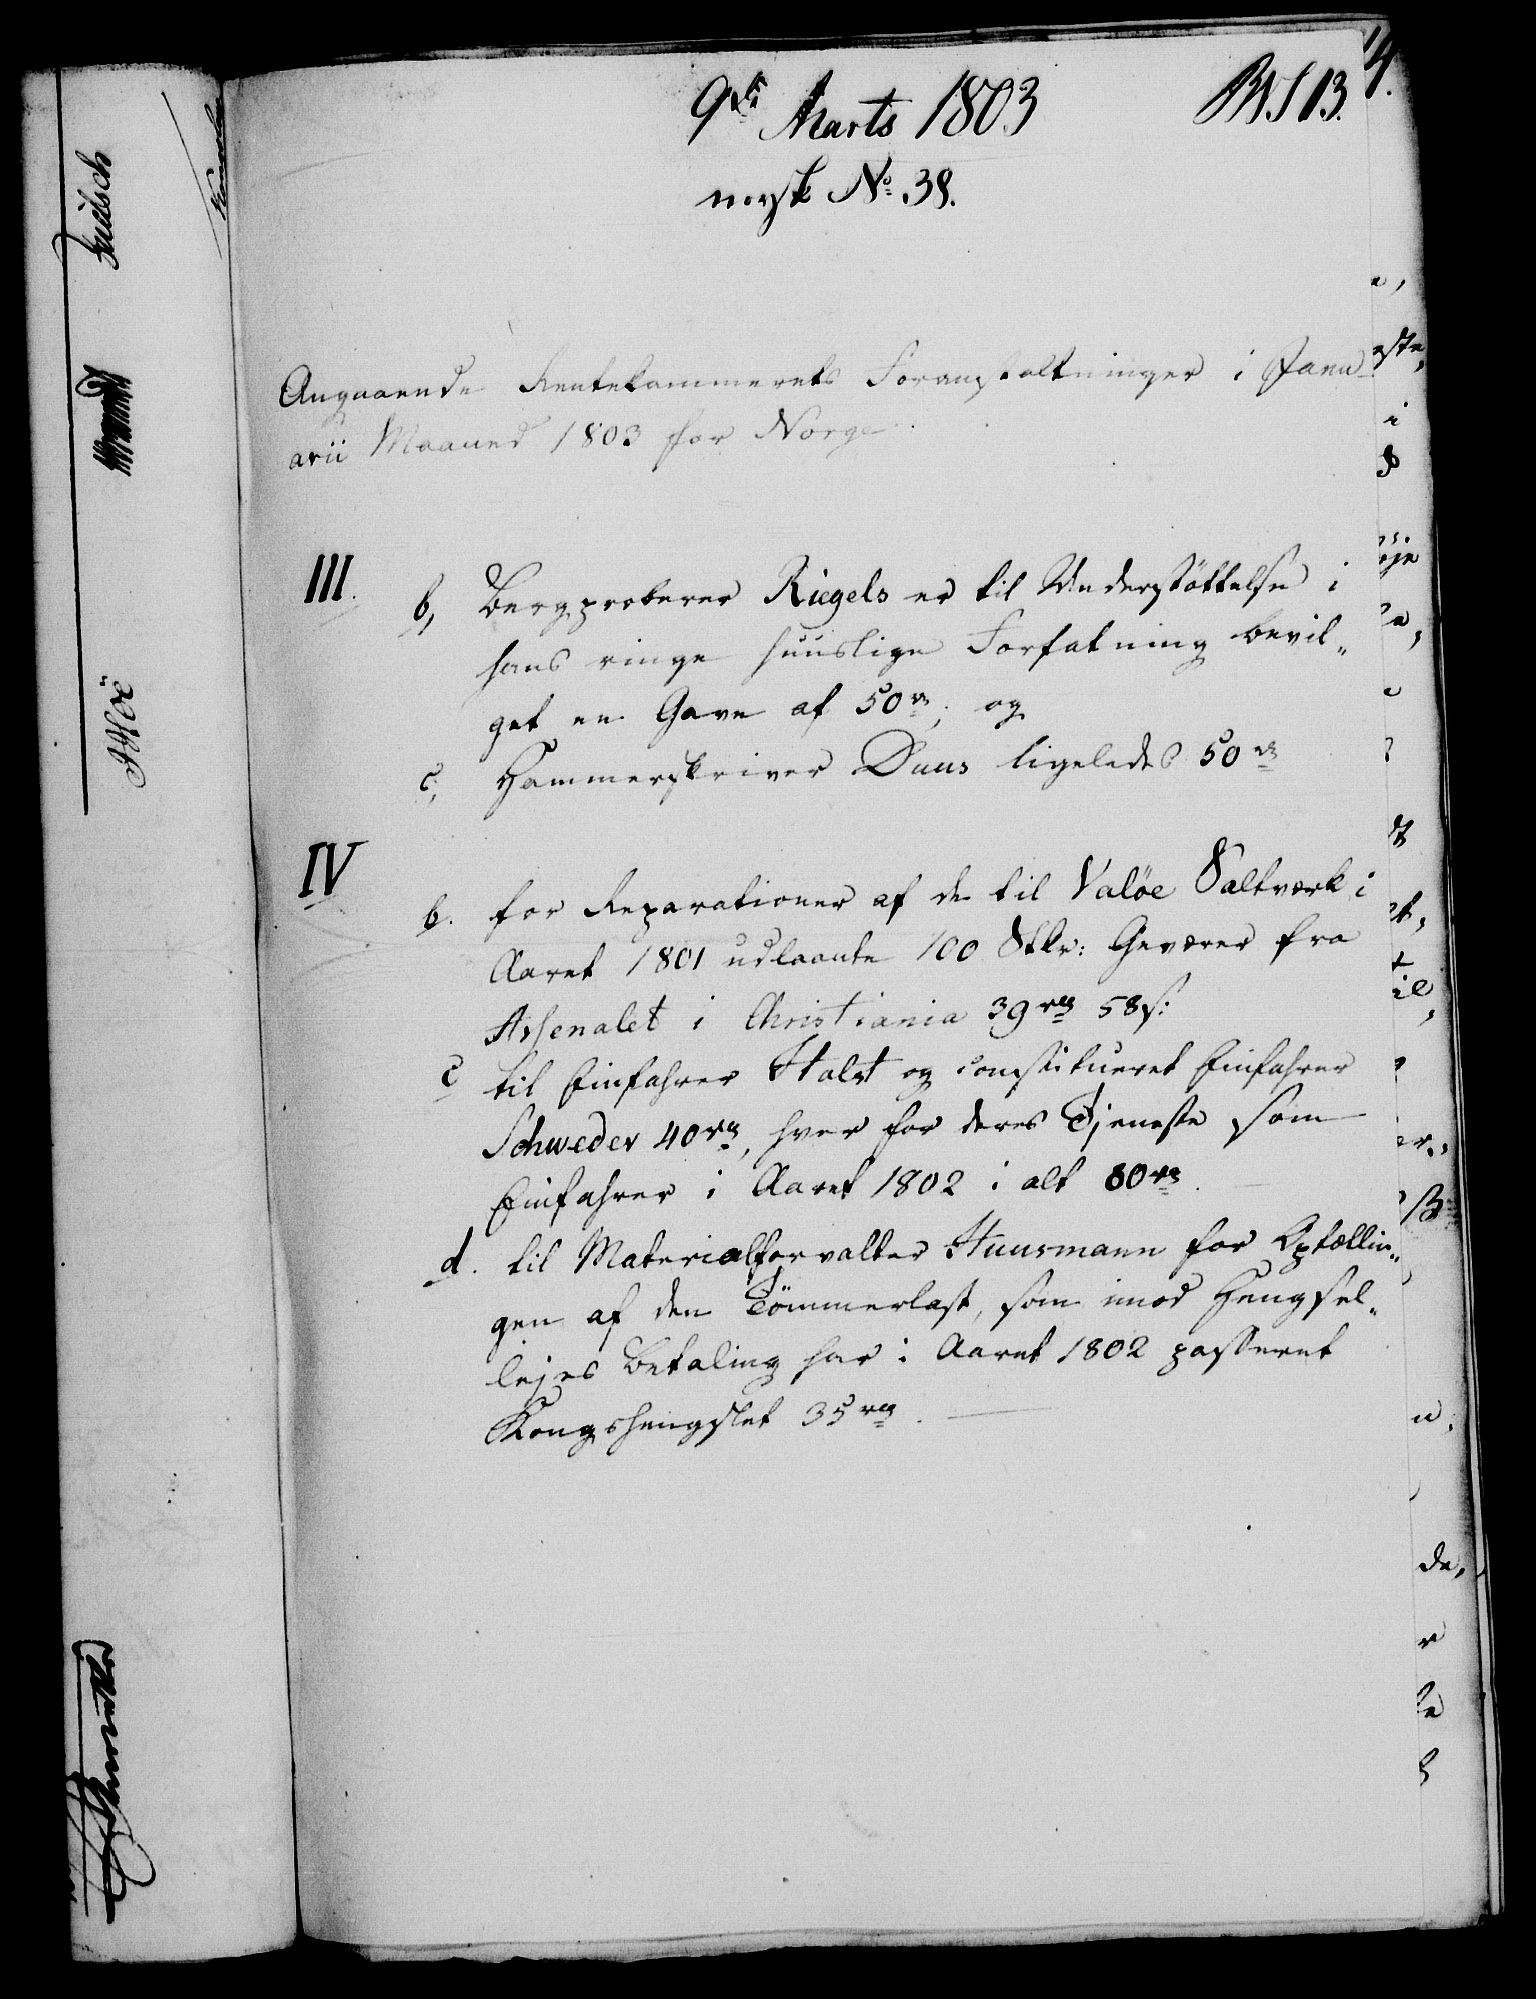 9de Marts 1803
norsk No. 38.
Angaaende Rentekammerets Foranstaltninger i Janu
arii Maaned 1803 for Norge.
III.
b, Bergproberer Riegels er til Understöttelse i
hans ringe huuslige Forfatning bevil„
get en Gave af 50 rd; og
c, Hammerskriver Duus ligeledes 50 rd
IV
b. for Reparationer af de til Valöe Saltværk i
Aaret 1801 udlaante 100 Stkr: Geværer fra
Arsenalet i Christiania 39 rd 58 s:
c til Einfahrer Holst og constitueret Einfahrer
Schweder 40 rd, hver for deres Tjeneste som
Einfahrer i Aaret 1802 i alt 80 rd.
d. til Materialforvalter Huusmann for Optællin„
gen af den Tömmerlast, som imod Hengsel„
lejes Betaling har i Aaret 1802 passeret
Kongshengslet 35 rd.